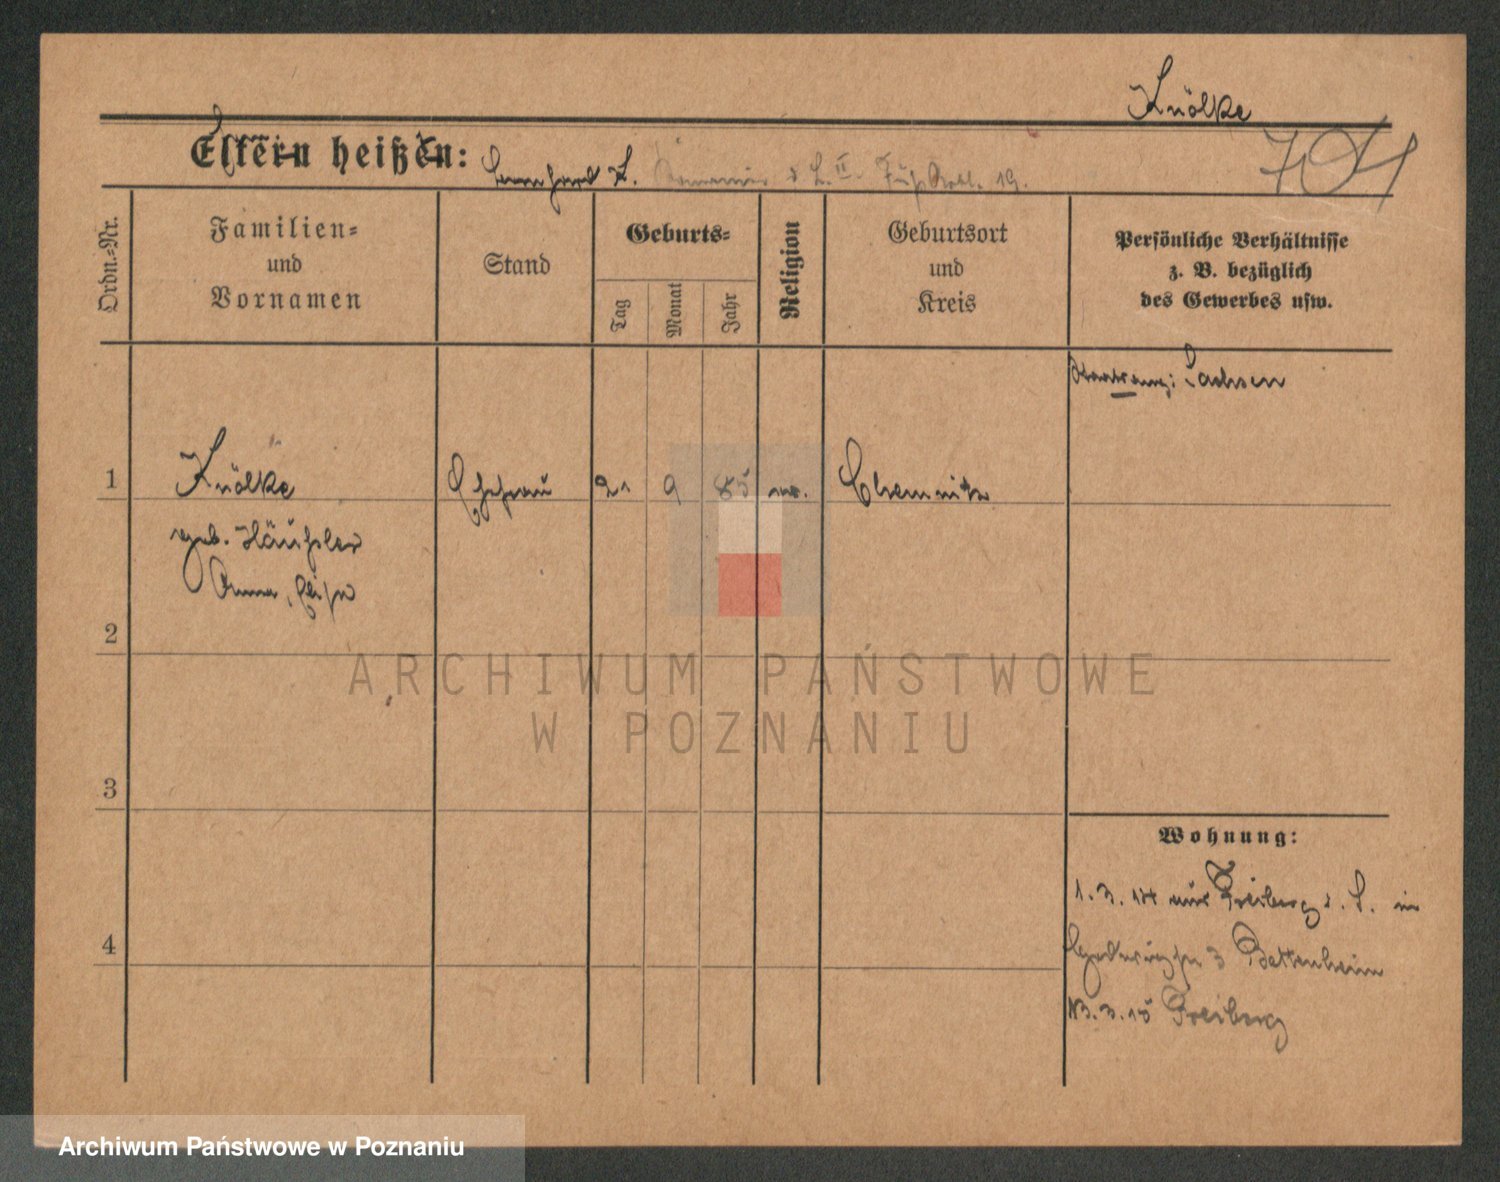 Knölke
Eltern heißen: Bernhard K.
Ordn.-Nr.
Familien-
und
Vornamen
Stand
Geburts-
Tag
Monat
Jahr
Religion
Geburtsort
und
Kreis
Persönliche Verhältnisse
z. B. bezüglich
des Gewerbes usw.
Staatsang: Sachsen
1 Knölke Ehefrau 21 9 85 Chemnitz
geb. Häußler
Anna, Elise
2
3
4
Wohnung:
1.3.14 aus Freiberg i. S. in
3 Bettenheim
13.3.15 Freiberg
ARCHIWUM PAŃSTWOWE
W POZNANIU
Archiwum Państwowe w Poznaniu